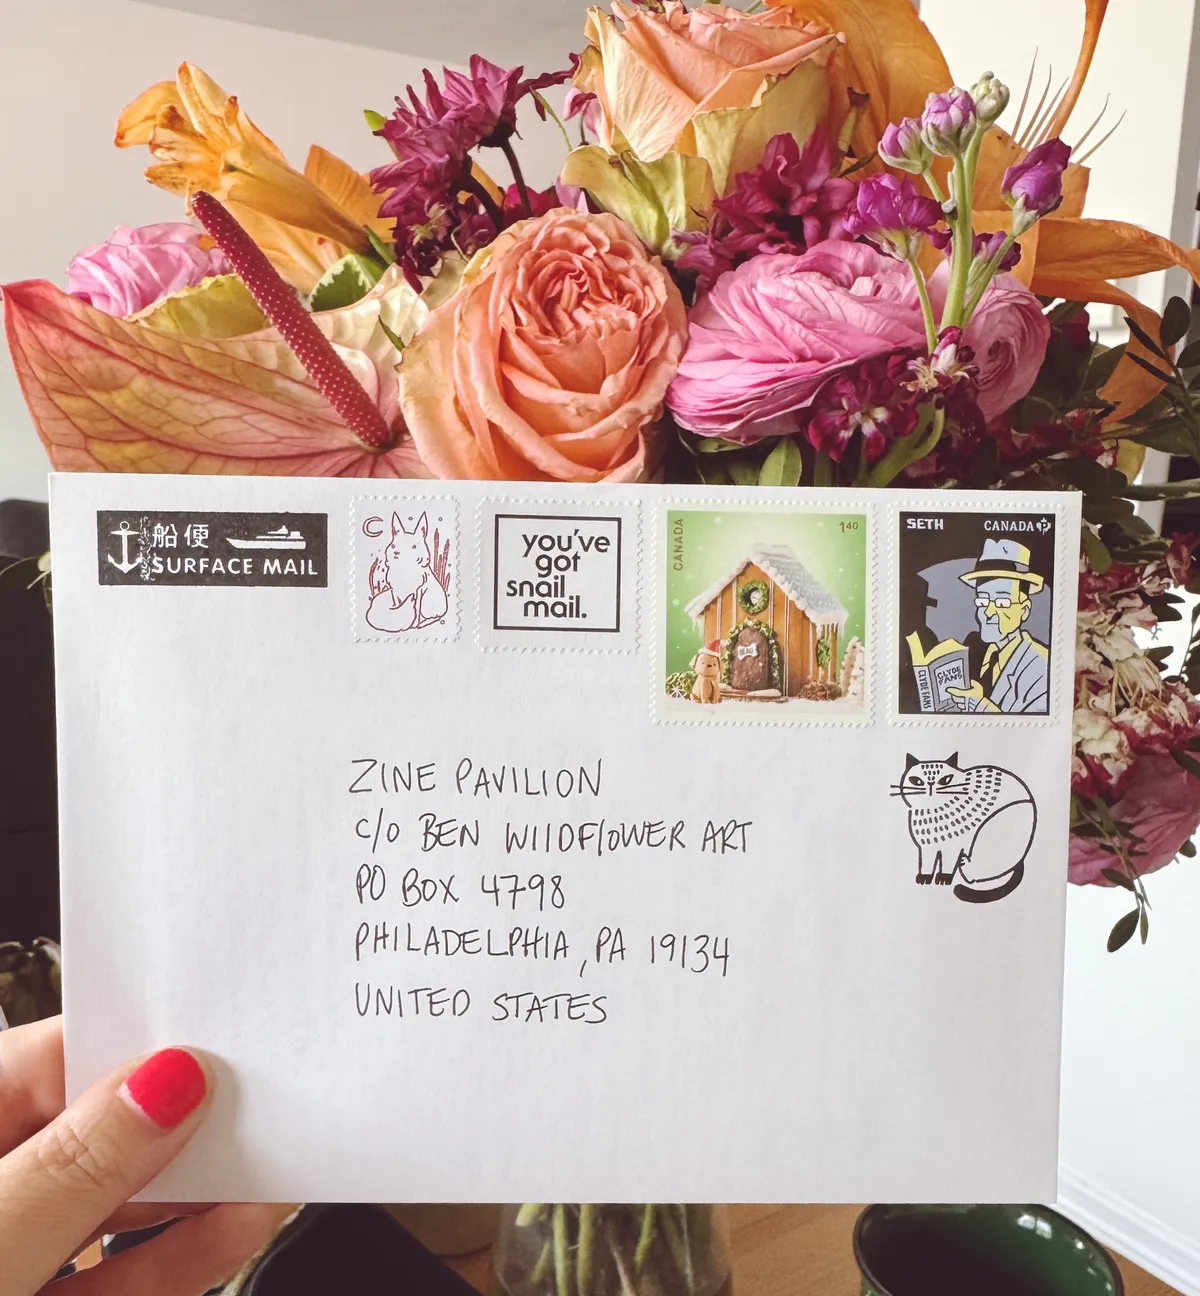 船便
SURFACE MAIL
you've
got
snail
mail.
CANADA
1⁴⁰
SETH
CANADA P
CLYDE
FANS
CLYDE FANS
ZINE PAVILION
C/O BEN WIlDFlOWER ART
PO BOX 4798
PHILADELPHIA, PA 19134
UNITED STATES